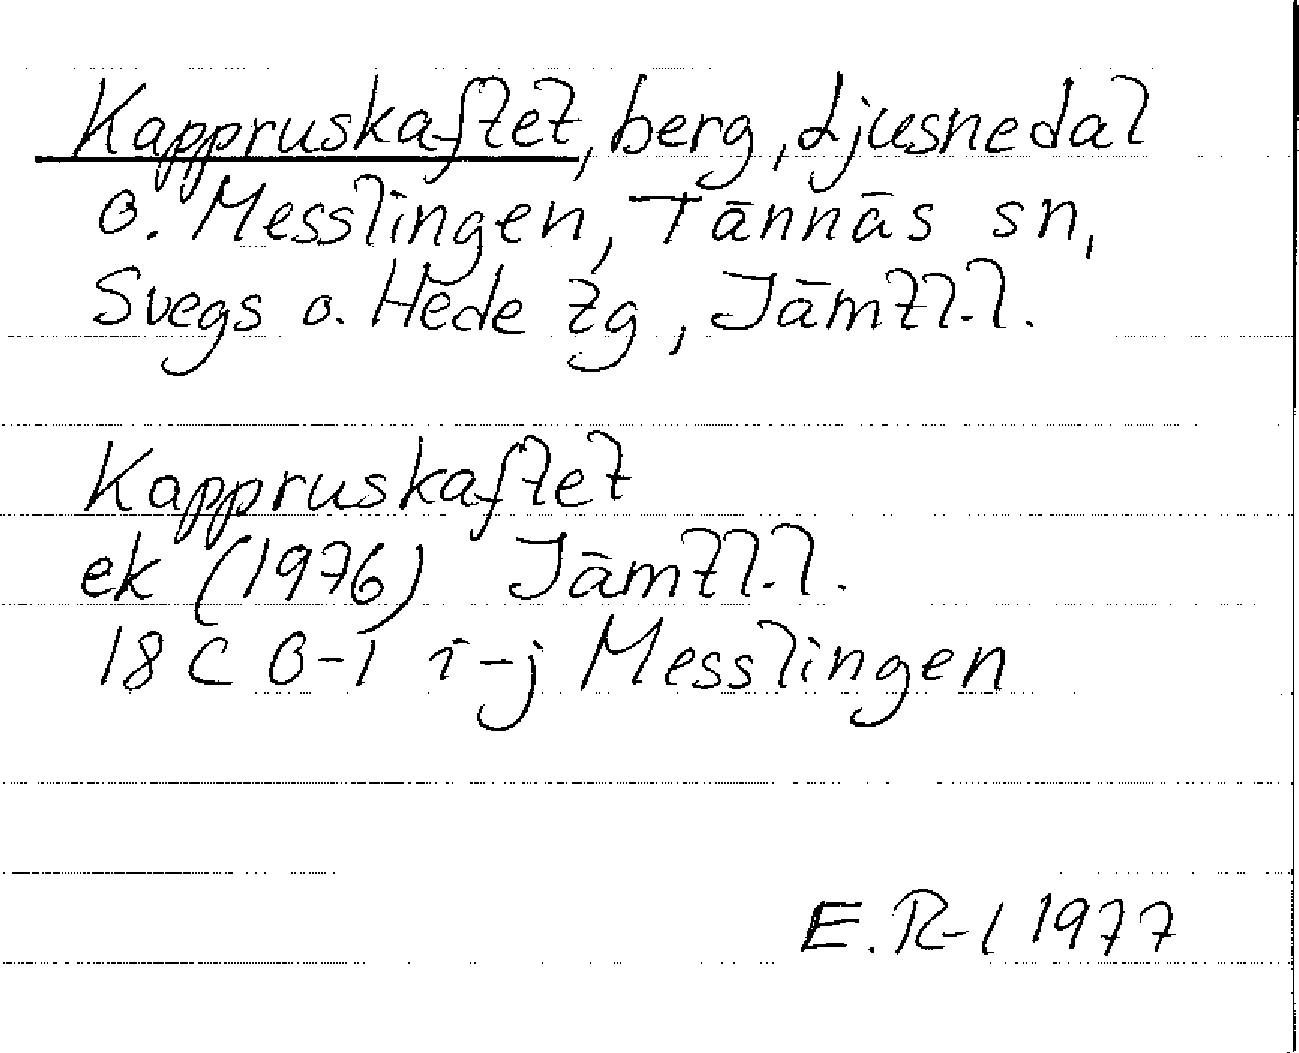 Kappruskaftet, berg, Ljusnedal
o. Messlingen, Tännäs sn,
Svegs o. Hede tg, Jämtl.l.
Kappruskaftet
ek (1976) Jämtl.l.
18C 0-1 i-j Messlingen
E. R-l 1977